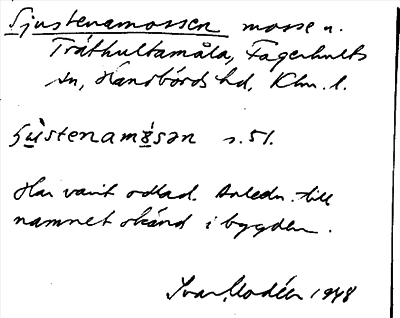 Sjustenamossen mosse u.
Tråthultamåla, Fagerhults
sn, Handbörds hd, Klm. l.
s. 51.
Har varit odlad. Anledn. till
namnet okänd i bygden.
Ivar Modéer 1948